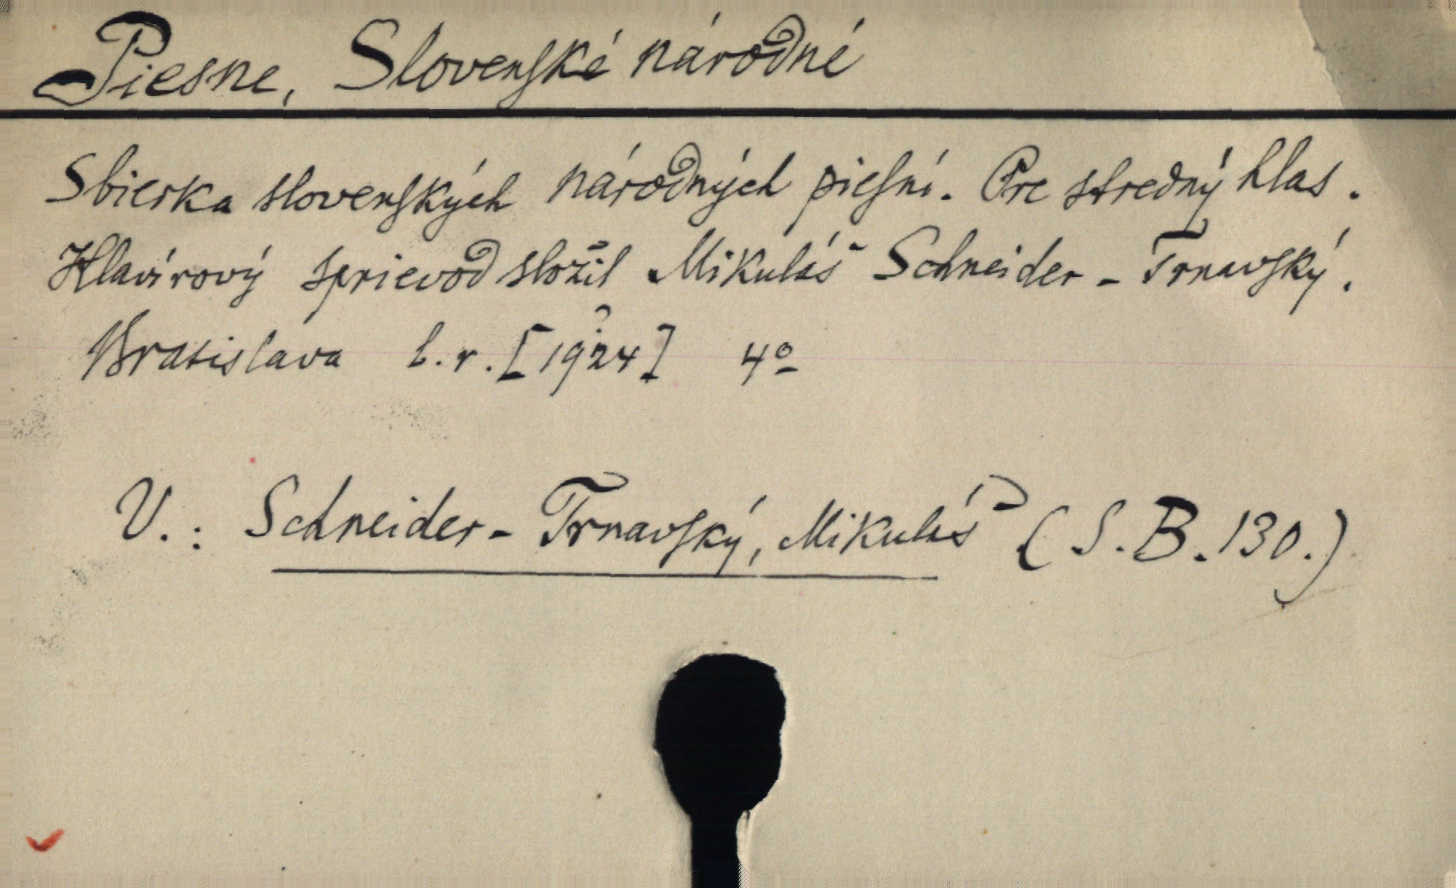 Piesne, Slovenské národné
Sbierka slovenských národných piesní. Pre stredný hlas.
Klavírový sprievod složil Mikuláš Schneider-Trnavský.
Bratislava b.r. [1924?] 4º
V.: Schneider-Trnavský, Mikuláš (S.B.130.)